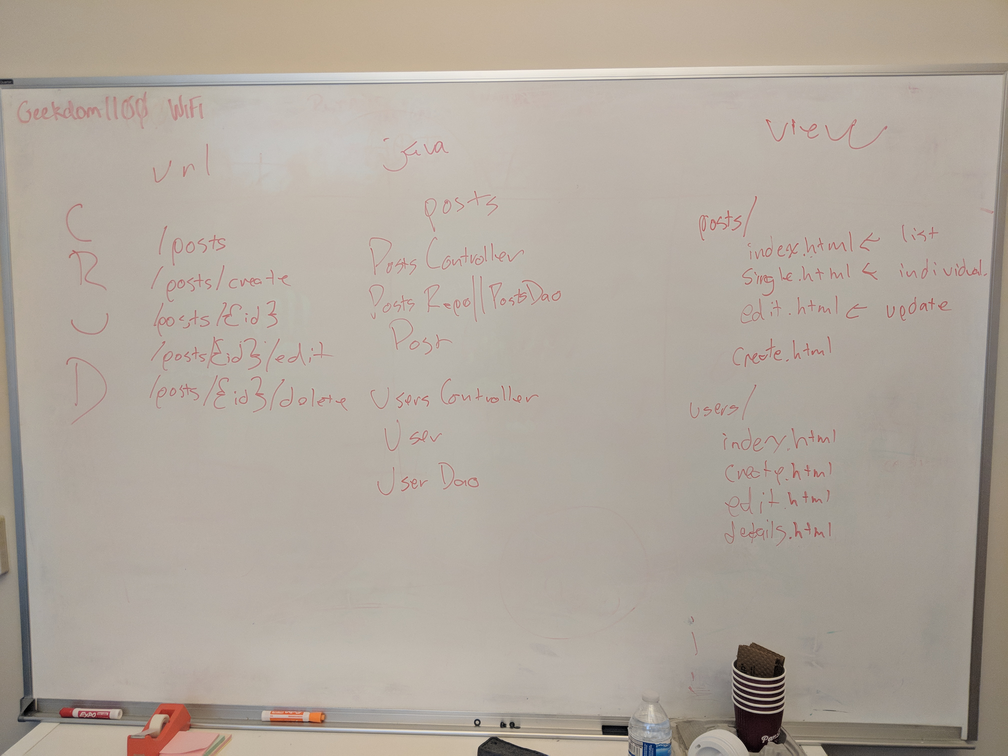 Geekdom1100 WiFi
url
java
view
C
R
U
D
/posts
/posts/create
/posts/{id}
/posts/{id}/edit
/posts/{id}/delete
posts
Posts Controller
Posts Repo//PostsDao
Post
Users Controller
User
User Dao
posts/
index.html ← list
single.html ← individual.
edit.html ← update
create.html
users/
index.html
create.html
edit.html
details.html
EXPO